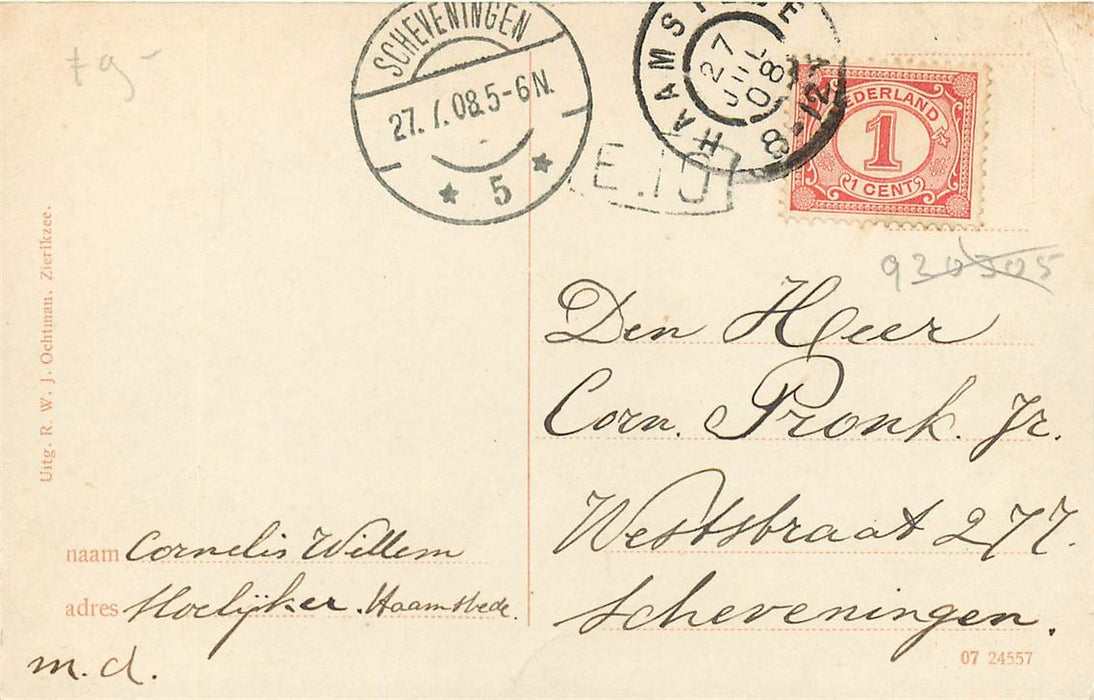 SCHEVENINGEN
27.7.08.5-6N.
5
HAAMSTEDE
27
JUL
08
8-12
NEDERLAND
1
1 CENT
79-
930305
Den Heer
Corn. Pronk. Jr.
Weststraat 277.
Scheveningen.
Uitg. R. W. J. Ochtman, Zierikzee.
naam Cornelis Willem
adres Hoelijker. Haamstede.
m.d.
07 24557